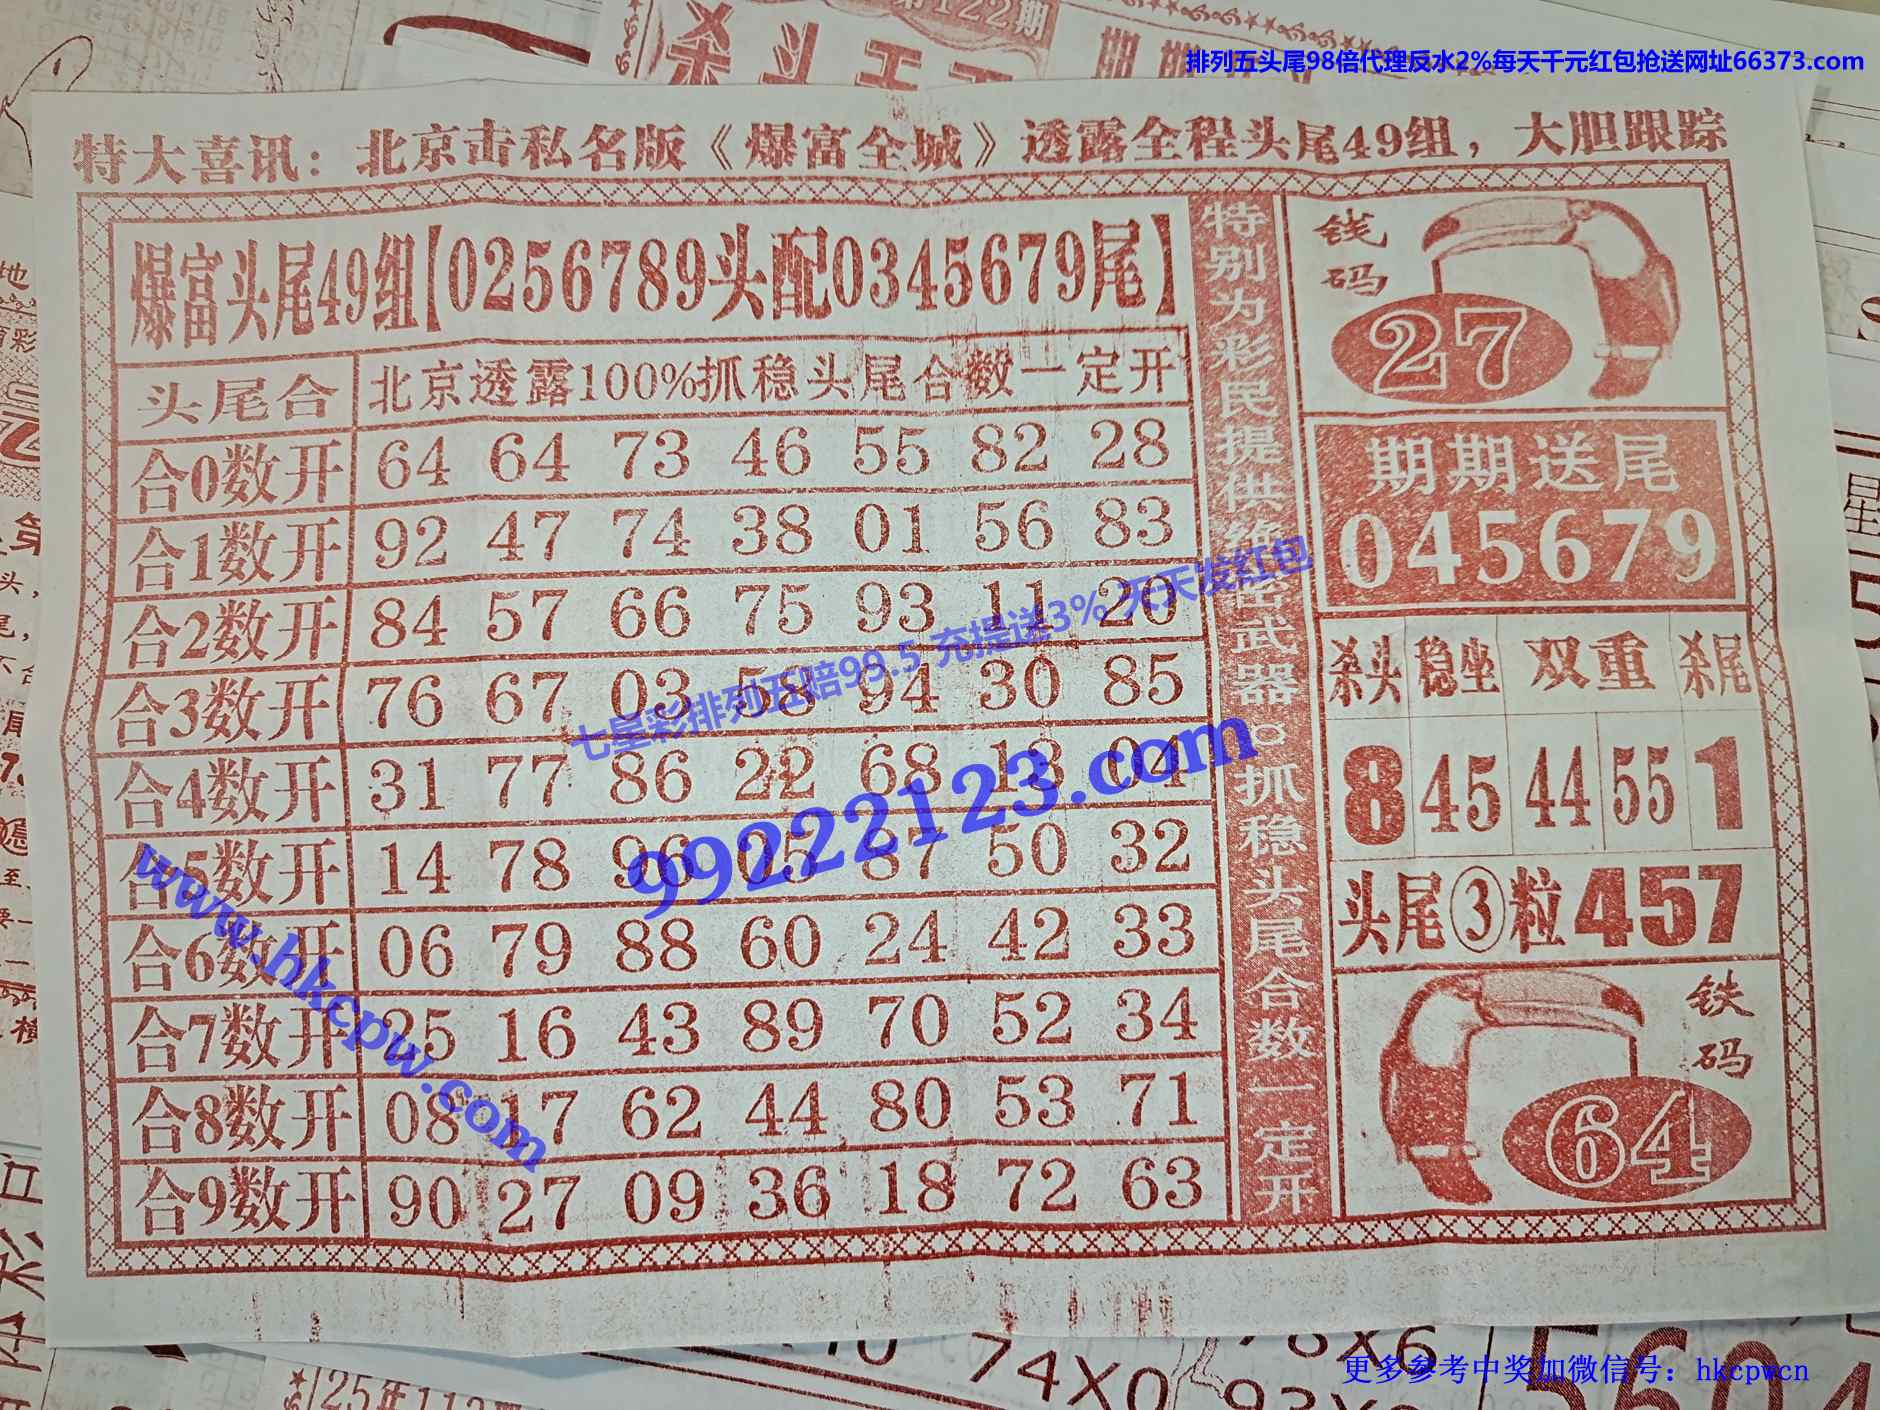 第122期
排列五头尾98倍代理反水2%每天千元红包抢送网址66373.com
特大喜讯：北京击私名版《爆富全城》透露全程头尾49组，大胆跟踪
爆富头尾49组【0256789头配0345679尾】
头尾合 北京透露100%抓稳头尾合数一定开
合0数开 64 64 73 46 55 82 28
合1数开 92 47 74 38 01 56 83
合2数开 84 57 66 75 93 11 20
合3数开 76 67 03 58 94 30 85
合4数开 31 77 86 22 68 13 04
合5数开 14 78 96 05 87 50 32
合6数开 06 79 88 60 24 42 33
合7数开 25 16 43 89 70 52 34
合8数开 08 17 62 44 80 53 71
合9数开 90 27 09 36 18 72 63
特别为彩民提供绝密武器：抓稳头尾合数一定开
钱码
27
期期送尾
045679
杀头 稳坐 双重 杀尾
8 45 44 55 1
头尾③粒457
铁码
64
七星彩排列五赔99.5 充提送3% 天天发红包
99222123.com
www.hkcpw.com
74X0
更多参考中奖加微信号：hkcpwcn